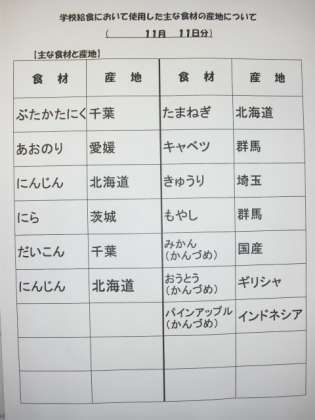 学校給食において使用した主な食材の産地について
( 11月 11日分)
【主な食材と産地】
食 材 産 地 食 材 産 地
ぶたかたにく 千葉 たまねぎ 北海道
あおのり 愛媛 キャベツ 群馬
にんじん 北海道 きゅうり 埼玉
にら 茨城 もやし 群馬
だいこん 千葉 みかん
(かんづめ) 国産
にんじん 北海道 おうとう
(かんづめ) ギリシャ
パインアップル
(かんづめ) インドネシア